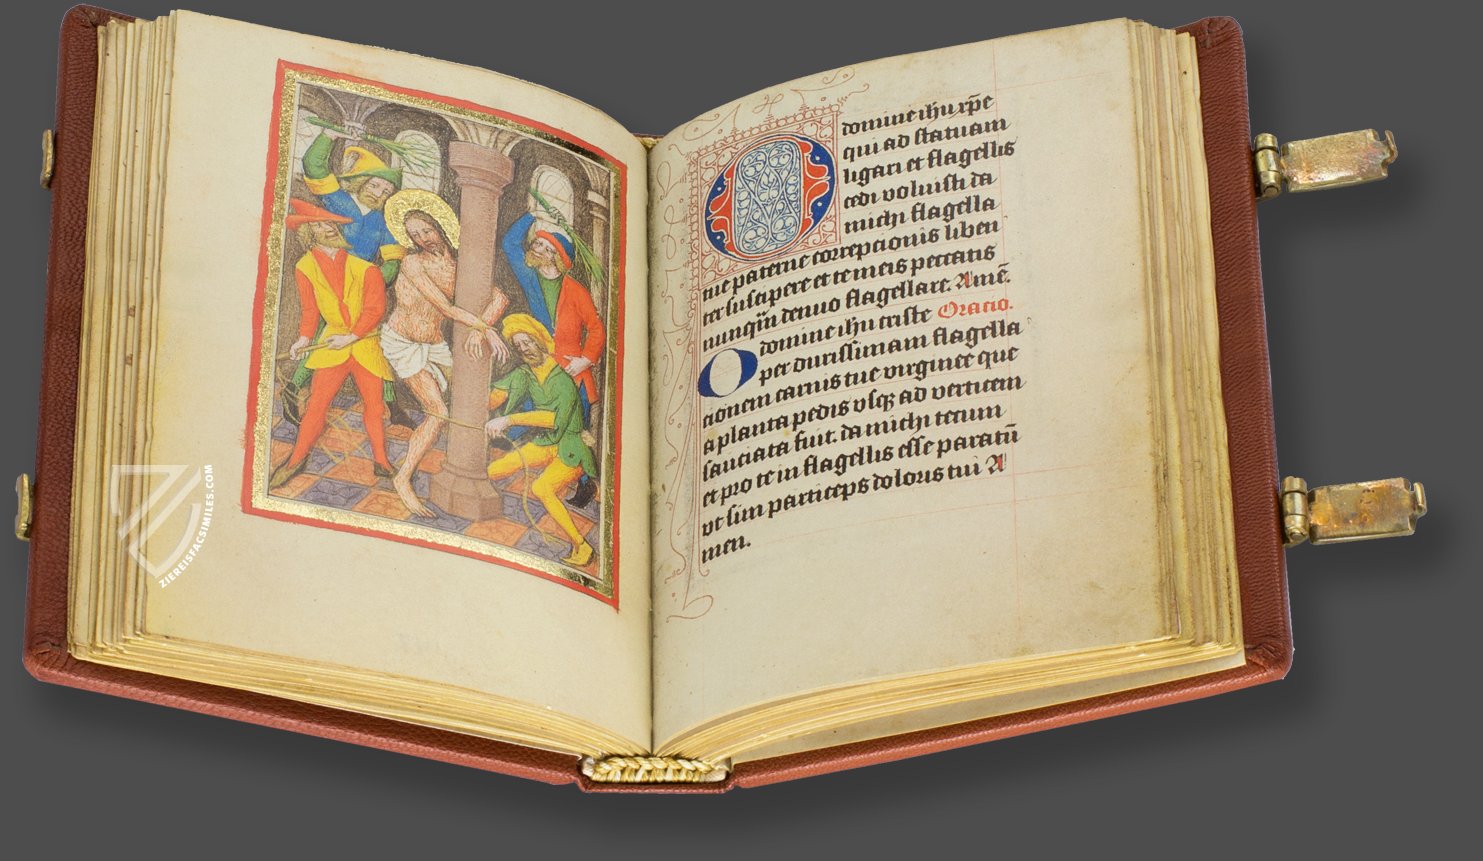 O domine ihu xp̄e
qui ad statuam
ligari et flagellis
cedi voluisti da
michi flagella
tue paterne correpcionis liben
ter suscipere et te meis peccatis
nunqūn denuo flagellare. Amē.
O domine ihu criste Oracio.
per durissimam flagella
cionem carnis tue virginee que
a planta pedis vsqꝫ ad verticem
sauciata fuit. da michi tecum
et pro te in flagellis esse paratū
vt sim particeps doloris tui A
men.
ZIEREISFACSIMILES.COM